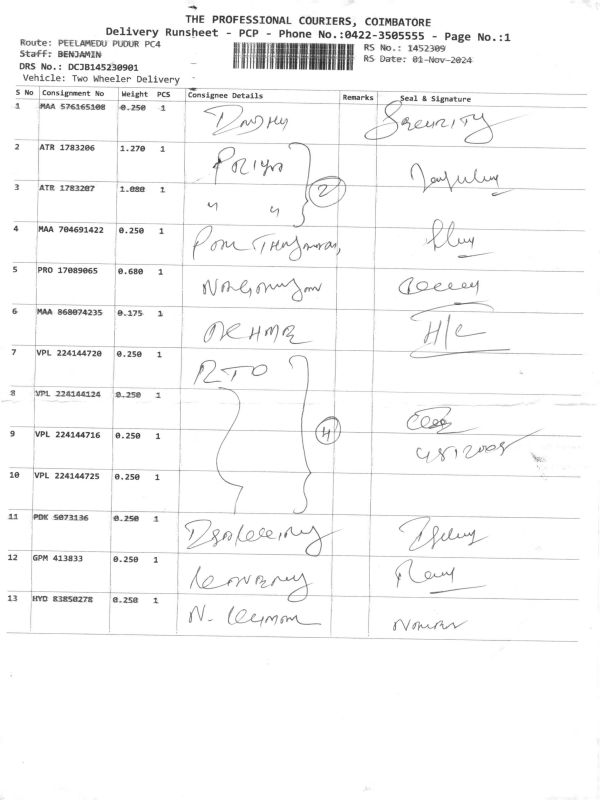 THE PROFESSIONAL COURIERS, COIMBATORE
Delivery Runsheet - PCP - Phone No.:0422-3505555 - Page No.:1
Route: PEELAMEDU PUDUR PC4
RS No.: 1452309
Staff: BENJAMIN
RS Date: 01-Nov-2024
DRS No.: DCJB145230901
Vehicle: Two Wheeler Delivery
S No Consignment No Weight PCS Consignee Details Remarks Seal & Signature
1 MAA 576165100 0.250 1 SECURITY
2 ATR 1783206 1.270 1
3 ATR 1783207 1.080 1 " " 2
4 MAA 704691422 0.250 1
5 PRO 17089065 0.680 1
6 MAA 868074235 0.175 1 H/C
7 VPL 224144720 0.250 1 RTO
8 VPL 224144124 0.250 1
9 VPL 224144716 0.250 1 4
10 VPL 224144725 0.250 1
11 PDK 5073136 0.250 1
12 GPM 413833 0.250 1
13 HYD 83850278 0.250 1